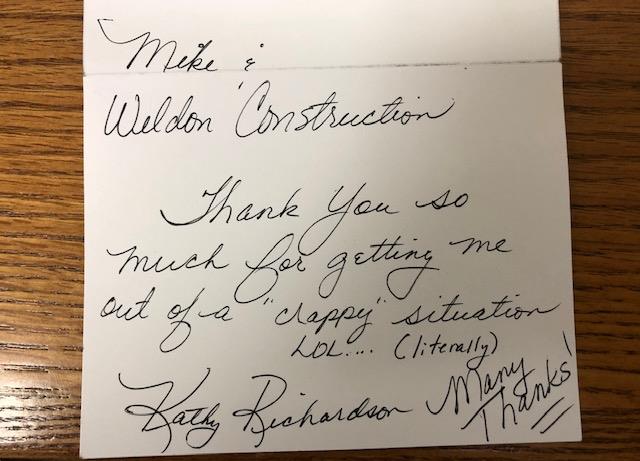 Mike &
Weldon Construction
Thank You so
much for getting me
out of a "crappy" situation
LOL.... (literally)
Kathy Richardson
Many
Thanks!